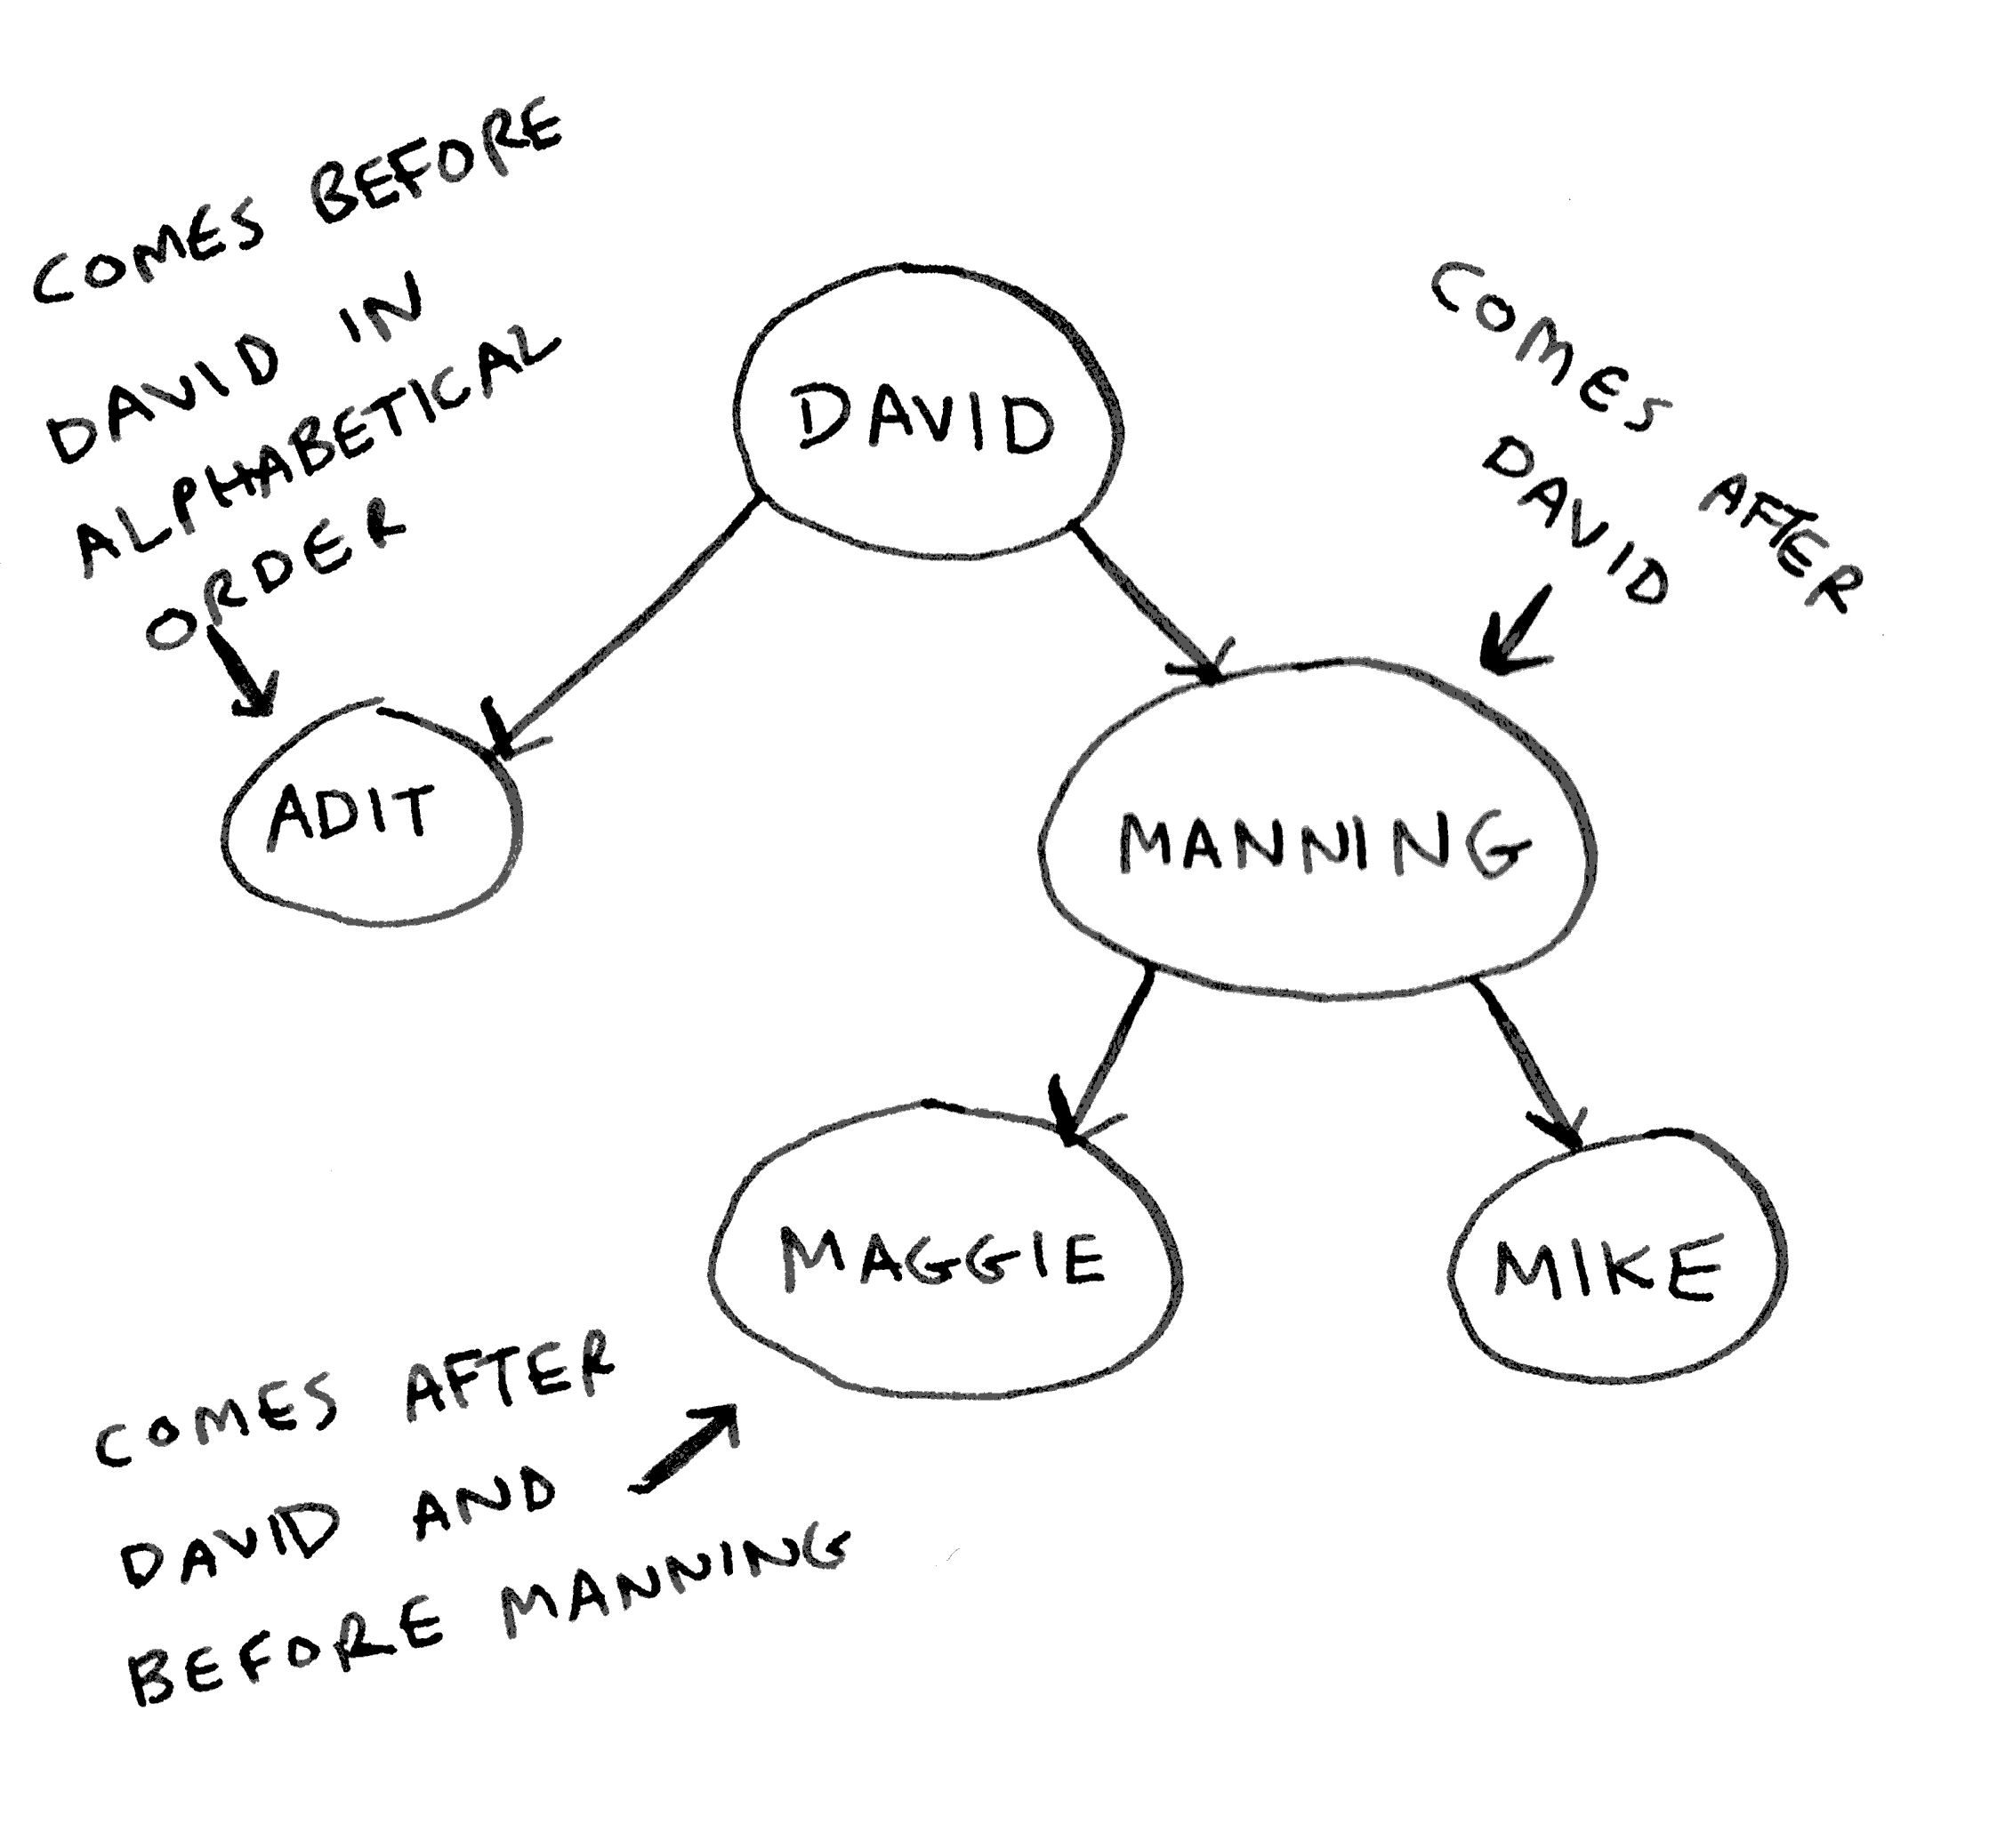 COMES BEFORE
DAVID IN
ALPHABETICAL
ORDER
COMES AFTER
DAVID
DAVID
ADIT
MANNING
MAGGIE
MIKE
COMES AFTER
DAVID AND
BEFORE MANNING